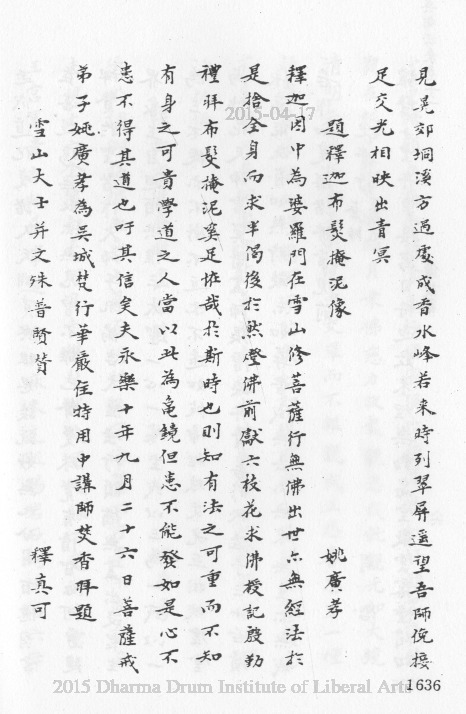 見晃郊坰溪方過處成香水峰若来時列翠屏遥望吾師俛接
足交光相映出青冥
題釋迦布髮掩泥像 姚廣孝
釋迦因中為婆羅門在雪山修菩薩行無佛出世亦無經法於
是捨全身而求半偈後於然燈佛前獻六枝花求佛授記殷勤
禮拜布髮掩泥奚足恠哉於斯時也則知有法之可重而不知
有身之可貴學道之人當以此為龜鏡但患不能發如是心不
患不得其道也吁其信矣夫永樂十年九月二十六日菩薩戒
弟子姚廣孝為吴城梵行華嚴住持用中講師焚香拜題
雪山大士并文殊普賢賛 釋真可
2015-04-17
2015 Dharma Drum Institute of Liberal Arts
1636